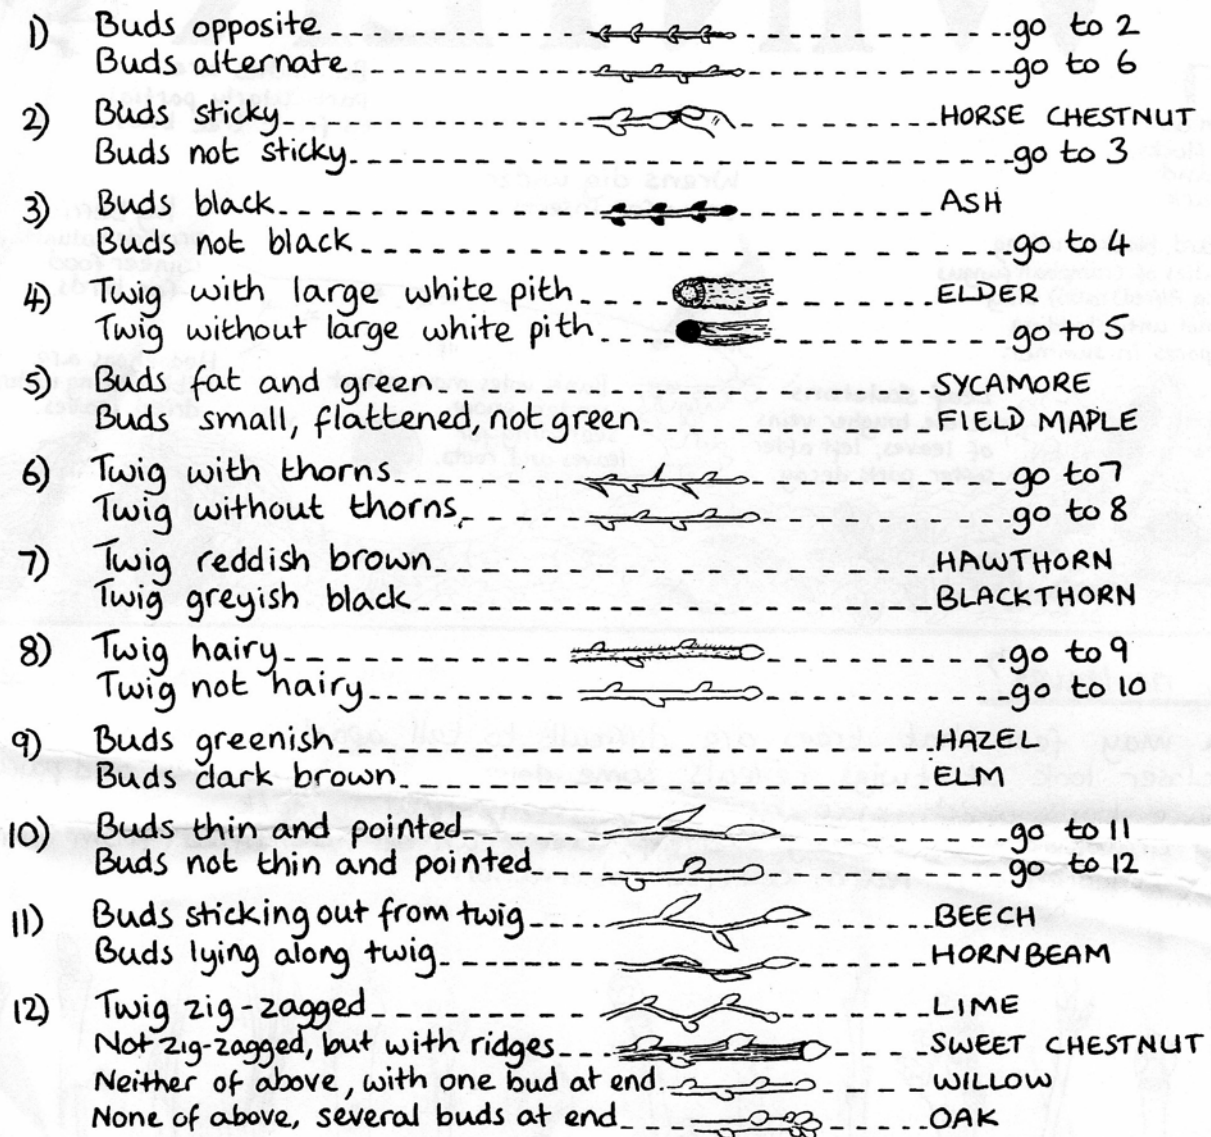 1) Buds opposite go to 2
Buds alternate go to 6
2) Buds sticky HORSE CHESTNUT
Buds not sticky go to 3
3) Buds black ASH
Buds not black go to 4
4) Twig with large white pith ELDER
Twig without large white pith go to 5
5) Buds fat and green SYCAMORE
Buds small, flattened, not green FIELD MAPLE
6) Twig with thorns go to 7
Twig without thorns go to 8
7) Twig reddish brown HAWTHORN
Twig greyish black BLACKTHORN
8) Twig hairy go to 9
Twig not hairy go to 10
9) Buds greenish HAZEL
Buds dark brown ELM
10) Buds thin and pointed go to 11
Buds not thin and pointed go to 12
11) Buds sticking out from twig BEECH
Buds lying along twig HORNBEAM
12) Twig zig-zagged LIME
Not zig-zagged, but with ridges SWEET CHESTNUT
Neither of above, with one bud at end WILLOW
None of above, several buds at end OAK